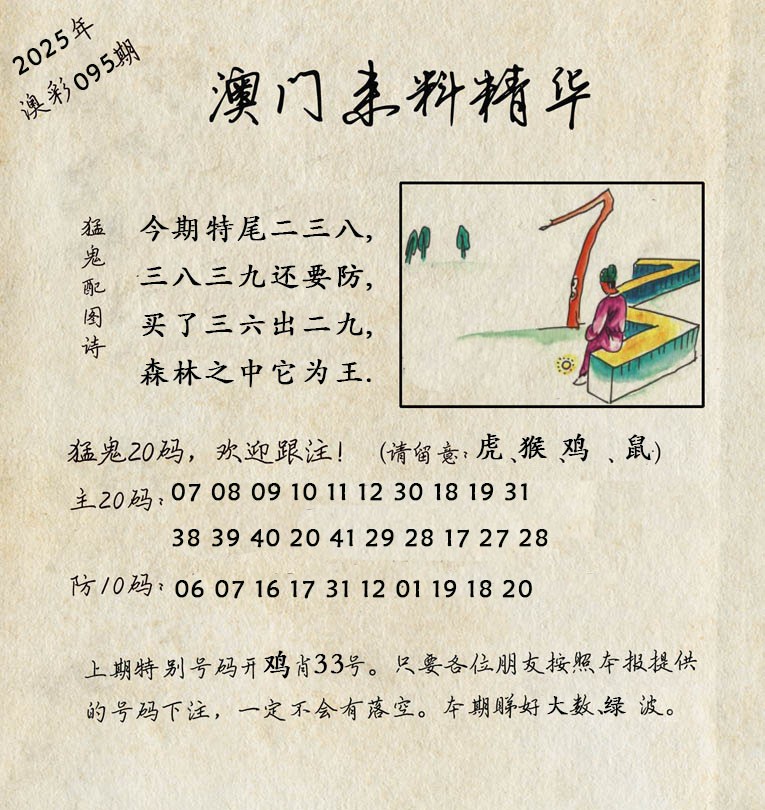 2025年
澳彩095期
澳门来料精华
猛鬼配图诗
今期特尾二三八,
三八三九还要防,
买了三六出二九,
森林之中它为王.
猛鬼20码，欢迎跟注！（请留意：虎、猴、鸡、鼠）
主20码：07 08 09 10 11 12 30 18 19 31
38 39 40 20 41 29 28 17 27 28
防10码：06 07 16 17 31 12 01 19 18 20
上期特别号码开鸡肖33号。只要各位朋友按照本报提供
的号码下注，一定不会有落空。本期睇好大数、绿 波。